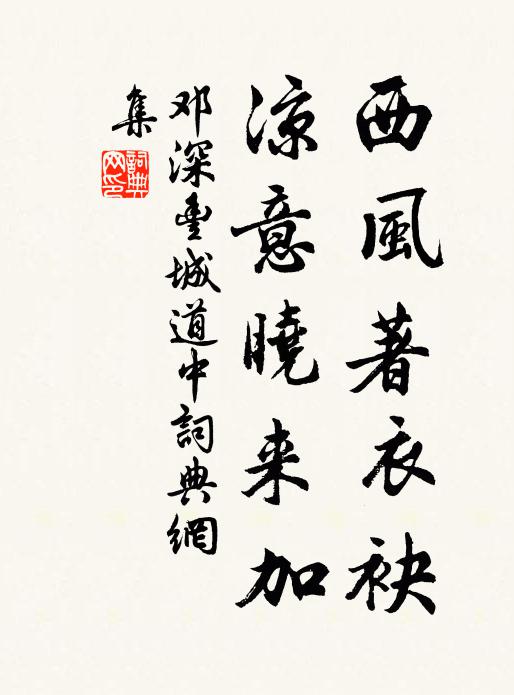 西風著衣袂
涼意曉来加
邓深豊城道中詞典網
集
詞典网印